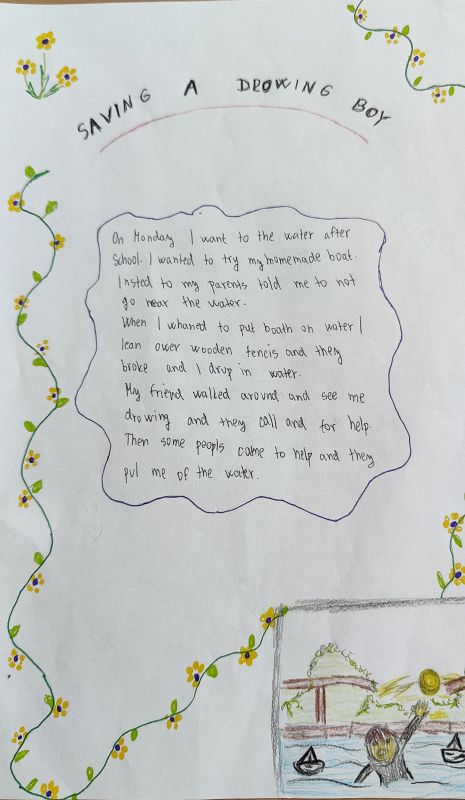 SAVING A DROWING BOY
On Monday I want to the water after
School. I wanted to try my homemade boat.
Insted to my parents told me to not
go near the water.
When I whaned to put boath on water I
lean ower wooden fencis and they
broke and I drup in water.
My friend walked around and see me
drowing and they call and for help.
Then some peopls came to help and they
pul me of the water.